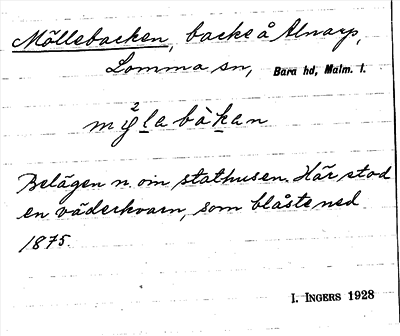 Möllebacken, backe å Alnarp,
Lomma sn, Bara hd, Malm. l.
bàkan
Belägen n. om stathusen. Här stod
en väderkvarn, som blåste ned
1875.
I. INGERS 1928